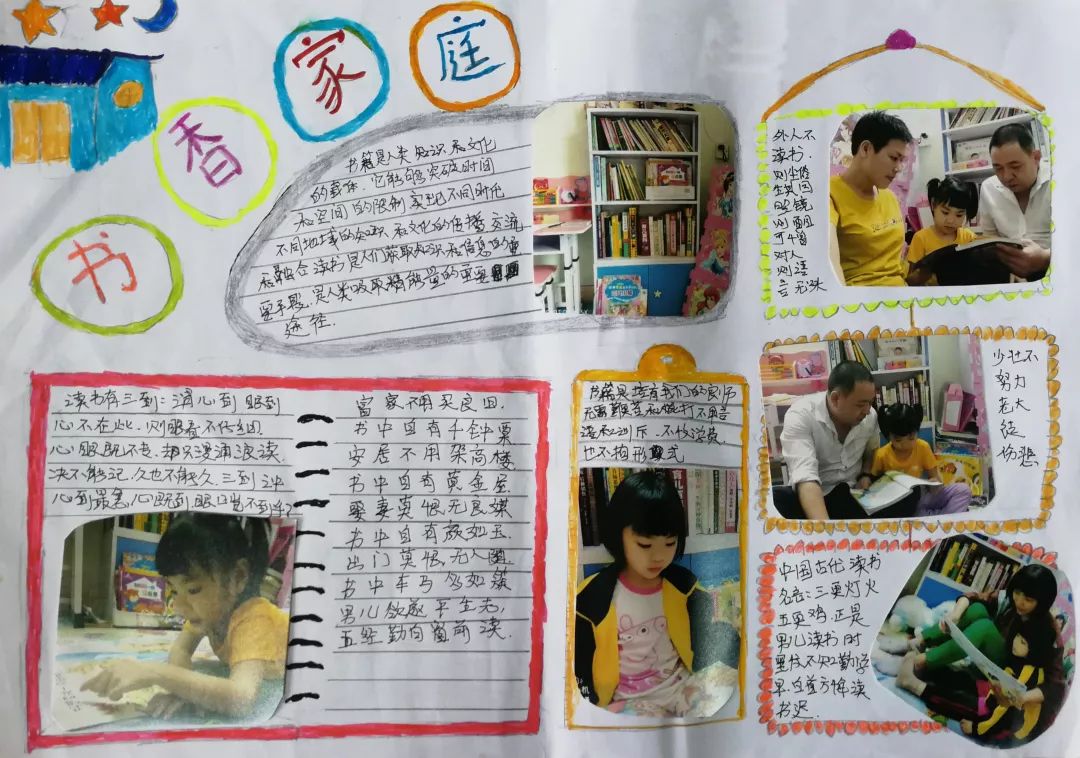 书香家庭
书籍是人类知识和文化
的载体.它能够突破时间
和空间的限制实现不同时代
不同地域的知识和文化的传播交流
和融合读书是人们获取知识和信息的重
要手段.是人类吸取精神能量的重要
途径.
读书有三到:谓心到眼到
心不在此.则眼看不仔细
心眼既不专.却只漫浪诵读
决不能记.久也不能久.三到之中
心到最急,心既到眼口岂不到乎?
富家不用买良田.
书中自有千钟粟
安居不用架高楼
书中自有黄金屋
娶妻莫恨无良媒
书中自有颜如玉
出门莫恨无人随
书中车马多如簇
男儿欲遂平生志,
五经勤向窗前读.
书籍是培育我们的良师
无需鞭笞和棍打.不用言
语和训斥.不收学费.
也不拘形式
外人不
读书.
则
眼镜
则
对人
则语
言无味
少壮不
努力
老大
徒
伤悲
中国古代读书
名言:三更灯火
五更鸡.正是
男儿读书时
黑发不知勤学
早.白首方悔读
书迟.